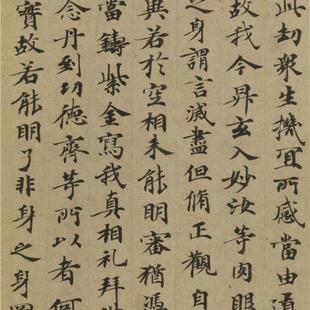 此劫衆生機宜所感當由道
故我今昇玄入妙汝等肉眼
之身謂言滅盡但脩正觀自
異若於空相未能明審猶憑
當鑄紫金寫我真相礼拜
念丹到功德齊等所以者何
實故若能明了非身之身圖